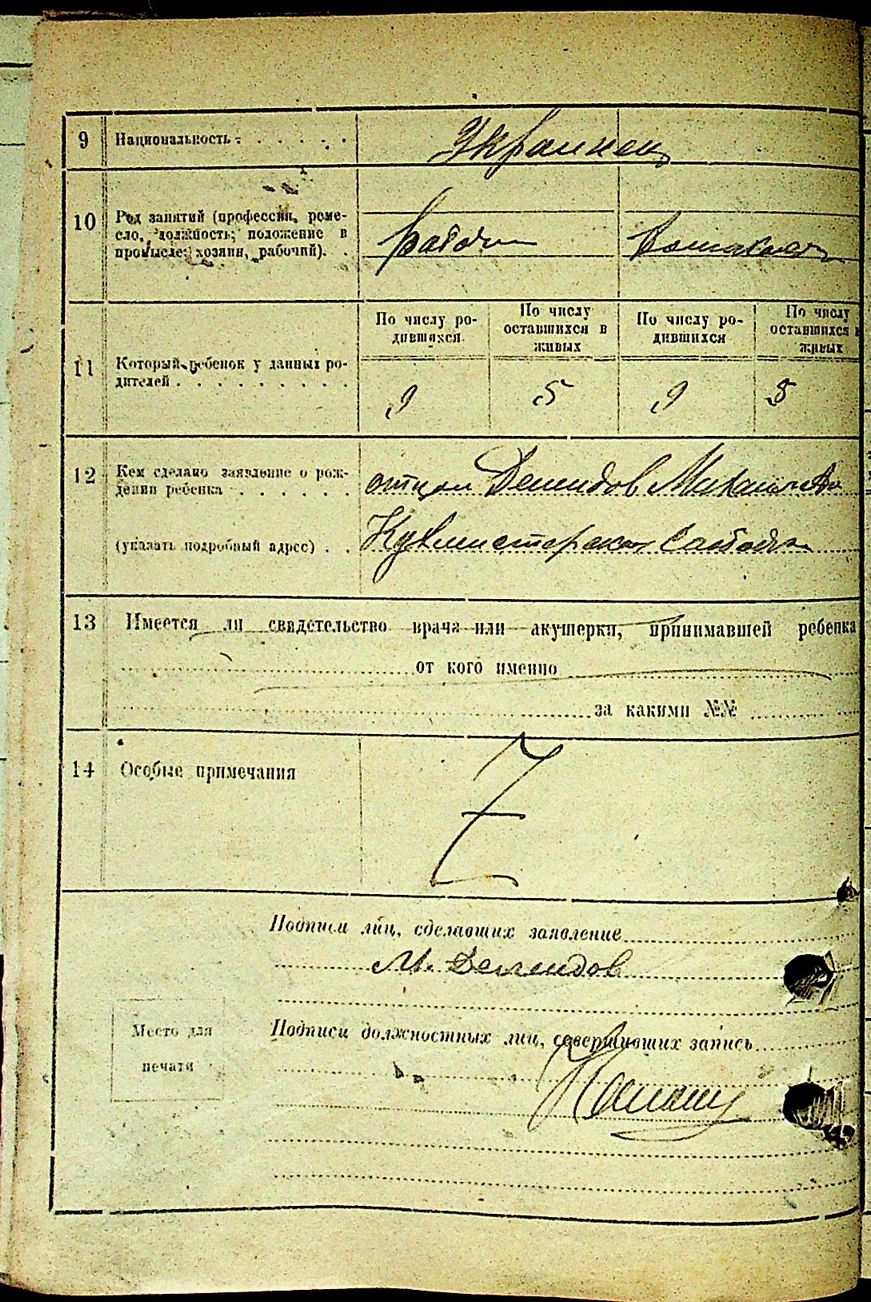 9 Национальность . . . . . . Украинец
10 Род занятий (профессия, реме-
сло, должность; положение в
промысле: хозяин, рабочий). .
По числу ро-
дившихся
По числу
оставшихся в
живых
По числу ро-
дившихся
По числу
оставшихся в
живых
11 Который ребенок у данных ро-
дителей . . . . . . . . . 9 5 9 5
12 Кем сделано заявление о рож-
дении ребенка . . . . . . отцом Демидов
(указать подробный адрес) . .
13 Имеется ли свидетельство врача или акушерки, принимавшей ребенка
от кого именно
за какими №№
14 Особые примечания Z
Подписи лиц, сделавших заявление
М. Демидов
Место для
печати
Подписи должностных лиц, совершивших запись